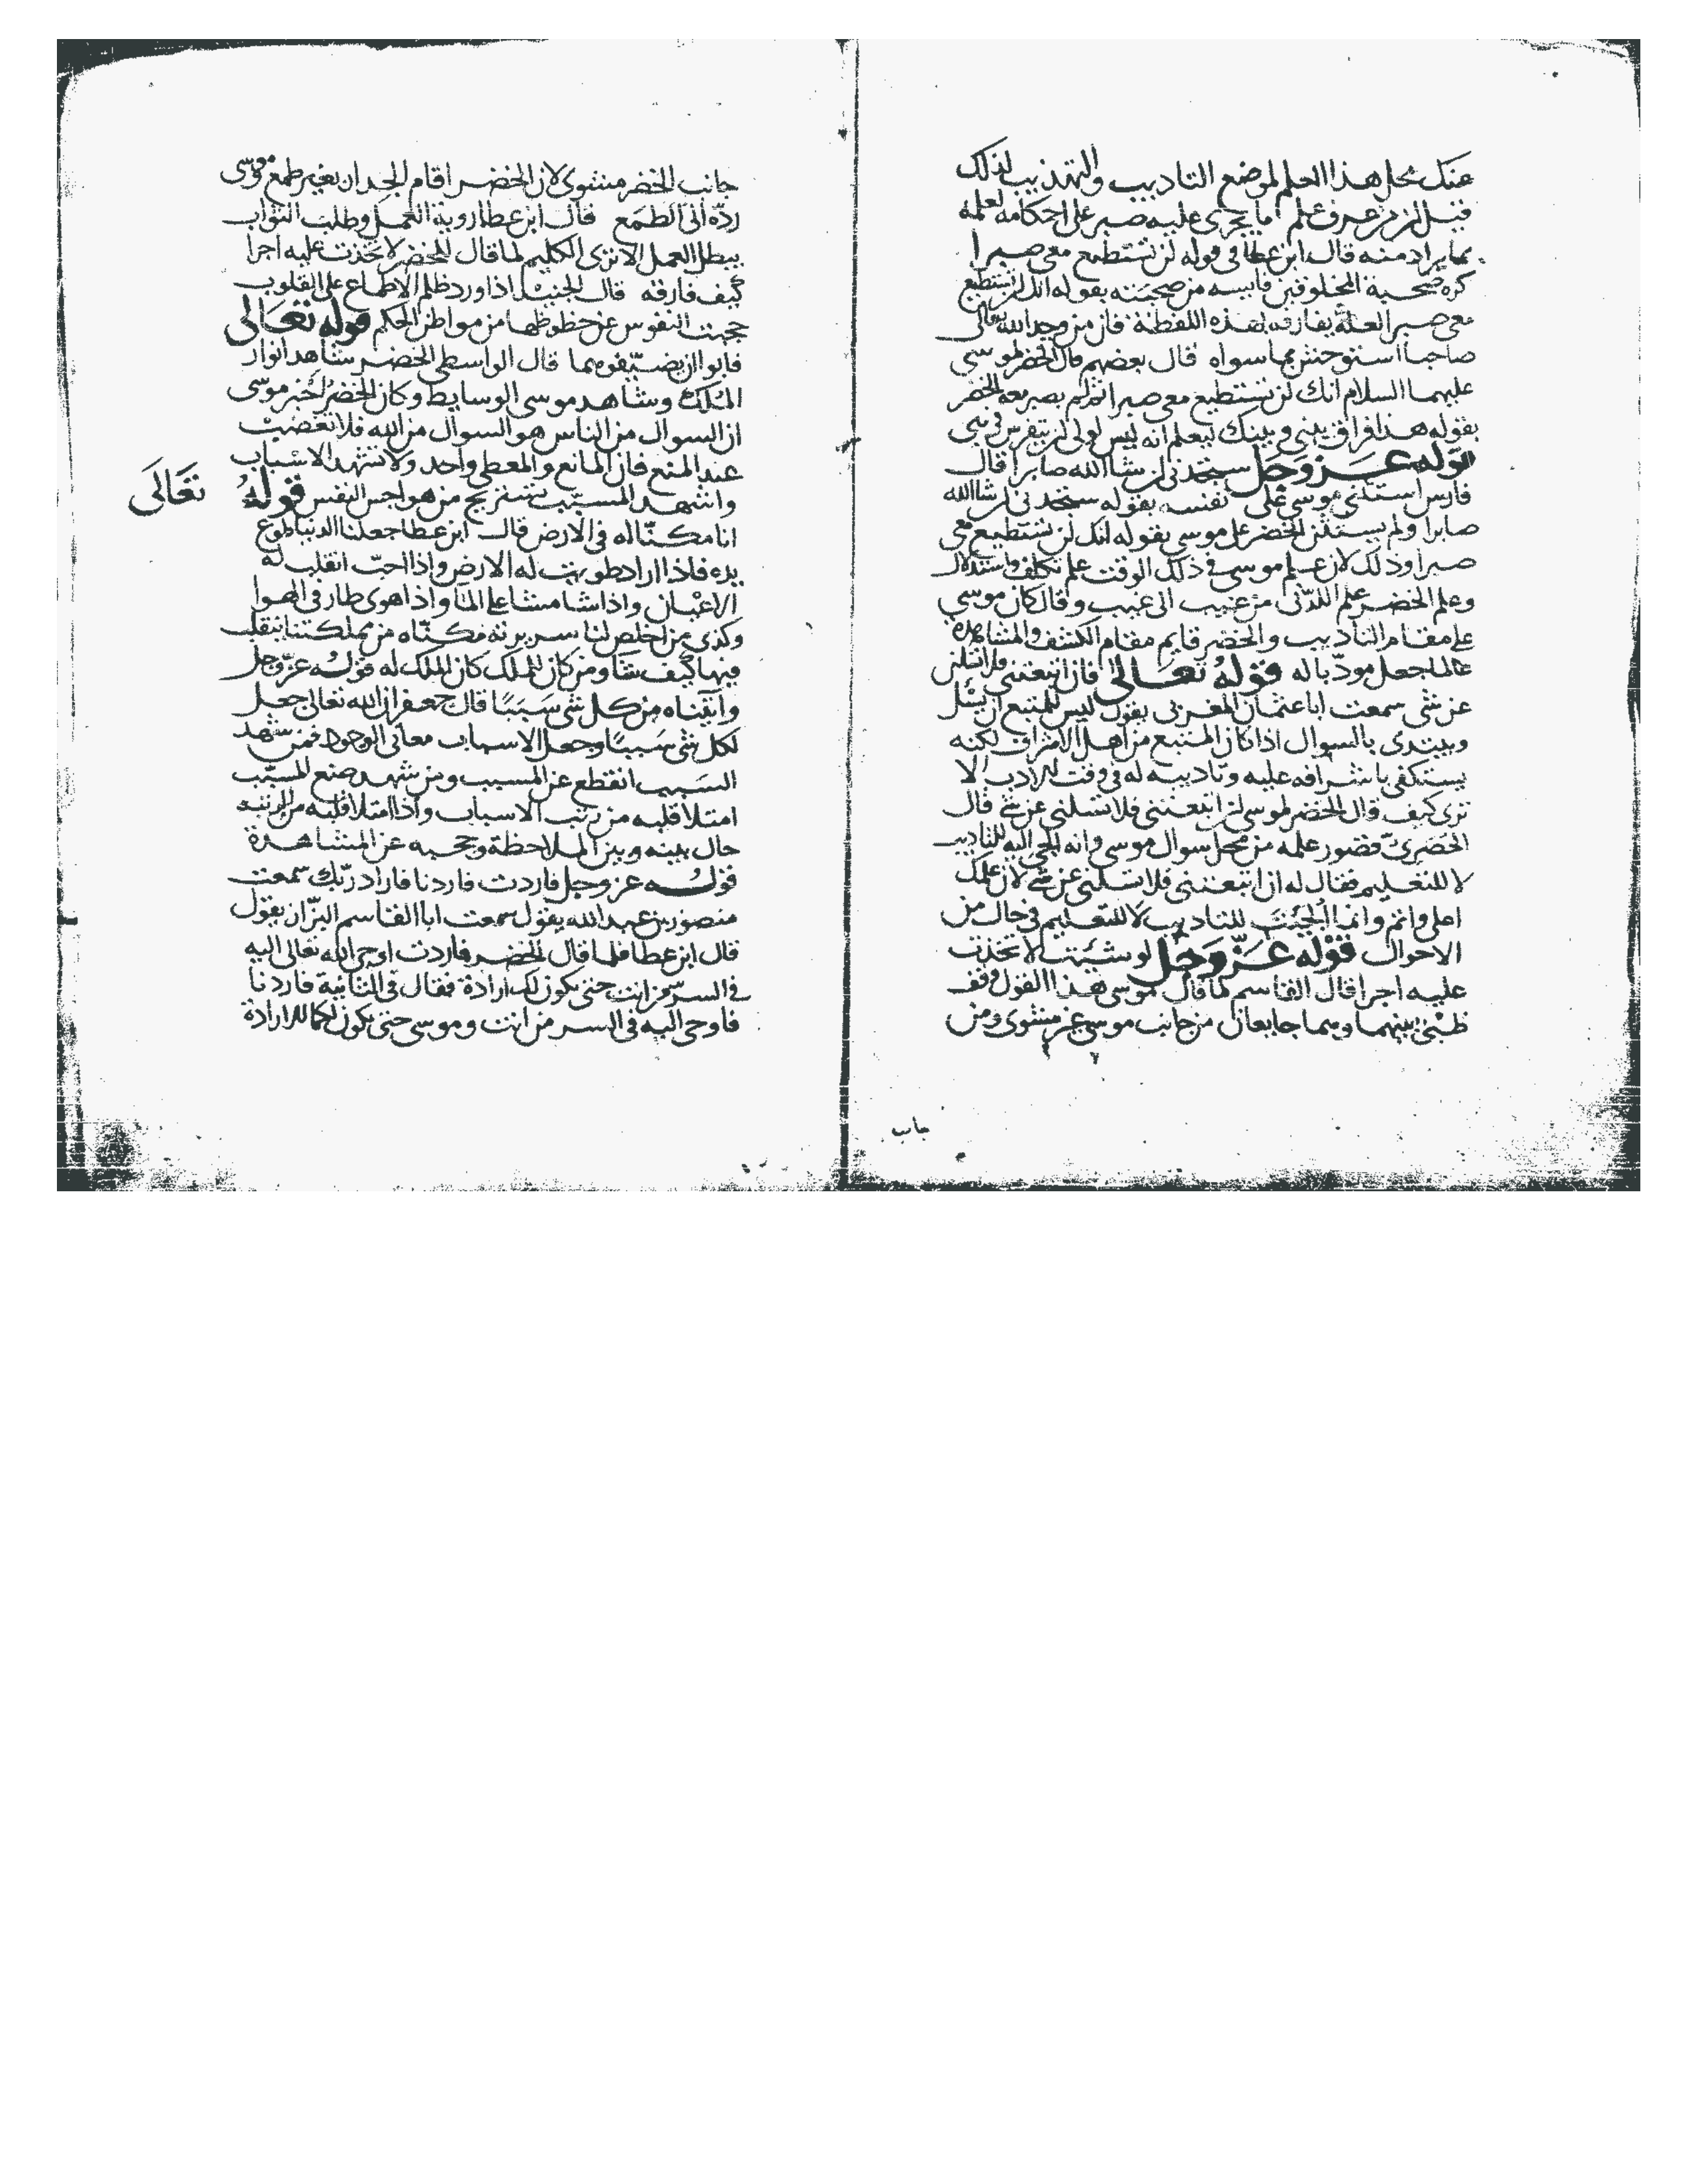 عنك محل هذا العلم لموضع التاديب والتهذيب لذلك
قيل ان من عرف علم ما يجري عليه صبر على احكامه لعلمه
بما يراد منه قال ابن عطا في قوله لن تستطيع معي صبرا
كره صحبة المخلوقين فايسه من صحبته بقوله انك لن تستطيع
معي صبرا لعله يفارقه بهذه اللفظة فان من وجد الله تعالى
صاحبا استوحش مما سواه قال بعضهم قال الخضر لموسى
عليهما السلام انك لن تستطيع معي صبرا ثم لم يصبر معه الخضر
بقوله هذا فراق بيني وبينك ليعلم انه ليس لولي ان يتفرس في نبي
قوله عز وجل ستجدني ان شا الله صابرا قال
فارس استثنى موسى على نفسه بقوله ستجدني ان شا الله
صابرا ولم يستثن الخضر على موسى بقوله انك لن تستطيع معي
صبرا وذلك لان علم موسى في ذلك الوقت علم تكلف واستدلال
وعلم الخضر علم اللدني من غيب الى غيب وقال كان موسى
على مقام التاديب والخضر قايم مقام الكشف والمشاهده
عالما جعل مودبا له قوله تعالى فان اتبعتني فلا تسلني
عن شي سمعت ابا عثمان المغربي يقول ليس للمتبع ان يسئل
ويبتدى بالسوال اذا كان المتبع من اهل الاشراق لكنه
يستكفي باشرافه عليه وتاديبه له في وقت الادب الا
ترى كيف قال الخضر لموسى ان اتبعتني فلا تسلني عن شي قال
الحصري قصور علمه من محل سوال موسى وانه الجي اليه للتاديب
لا للتعليم فقال له ان اتبعتني فلا تسلني عن شي لان علمك
اعلى واتم وانما الجئت للتاديب لا للتعليم في حال من
الاحوال قوله عز وجل لو شئت لاتخذت
عليه اجرا قال القاسم لما قال موسى هذا القول وقف
ظبي بينهما وهما جايعان من جانب موسى غير مشوي ومن
جانب
جانب الخضر مشوى لان الخضر اقام الجدار بغير طمع موسى
رده الى الطمع قال ابن عطا روية العمل وطلب الثواب
يبطل العمل الا ترى الكليم لما قال للخضر لاتخذت عليه اجرا
كيف فارقه قال الجنيد اذا ورد ظلم الاطماع على القلوب
حجبت النفوس عن حظوظها من مواطن الحكم قوله تعالى
فابوا ان يضيفوهما قال الواسطي الخضر شاهد انوار
الملك وشاهد موسى الوسايط وكان الخضر اخبر موسى
ان السوال من الناس هو السوال من الله فلا تغضب
عند المنع فان المانع والمعطي واحد ولا تشهد الاسباب
واشهد المسبب تستريح من هواجس النفس قوله تعالى
انا مكنا له في الارض قال ابن عطا جعلنا الدنيا طوع
يده فاذا اراد طويت له الارض واذا احب انقلب له
الاعيان واذا شا مشا على الما واذا هوى طار في الهوا
وكذى من اخلص لنا سريرته مكناه من مملكتنا يتقلب
فيها كيف شا ومن كان للملك كان الملك له قوله عز وجل
واتيناه من كل شي سببا قال جعفر ان الله تعالى جعل
لكل شي سببا وجعل الاسباب معاني الوجود فمن شهد
السبب انقطع عن المسبب ومن شهد صنع المسبب
امتلا قلبه من ريب الاسباب واذا امتلا قلبه من الريبه
حال بينه وبين الملاحظة وحجبه عن المشاهدة
قوله عز وجل فاردت فاردنا فاراد ربك سمعت
منصور بن عبد الله يقول سمعت ابا القاسم البزان يقول
قال ابن عطا فلما قال الخضر فاردت اوحى الله تعالى اليه
في السر من انت حتى يكون لك ارادة فقال في الثانية فاردنا
فاوحى اليه في السر من انت وموسى حتى يكون لكما ارادة